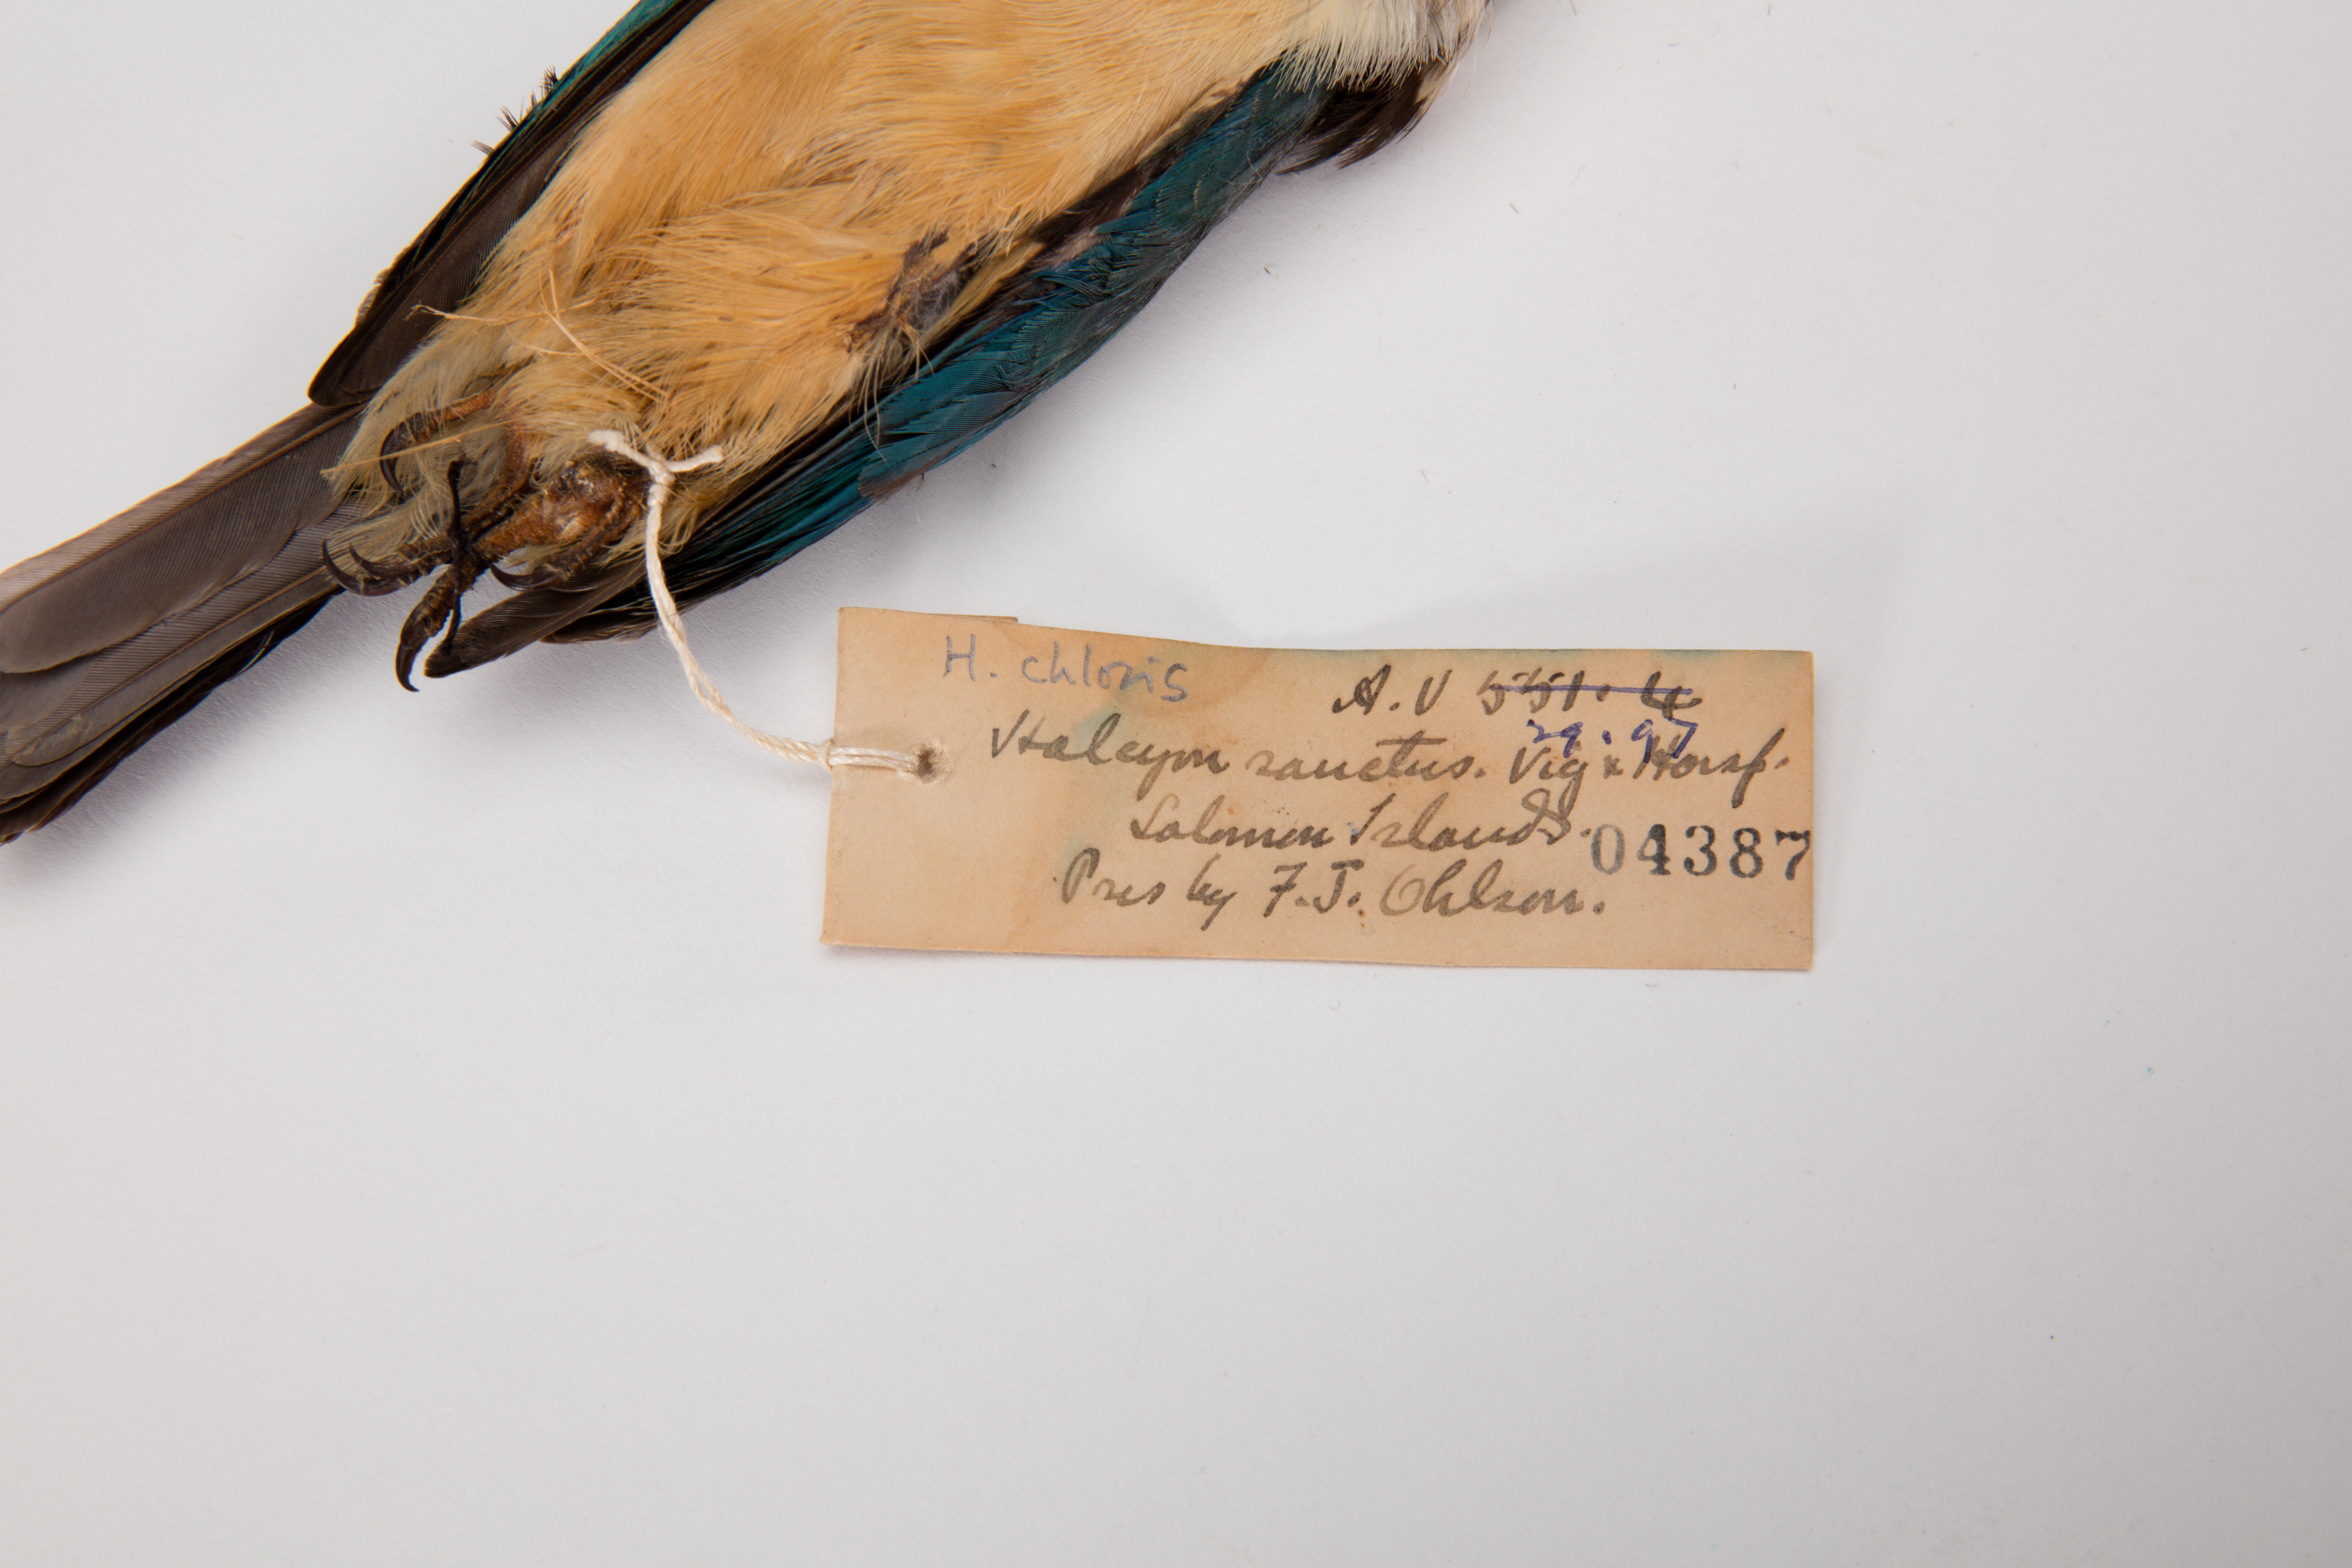 H. chloris
A.V 551.4
29.97
Halcyon sanctus. Vig & Horsf.
Solomon Islands.
04387
Pres by F.J. Ohlson.